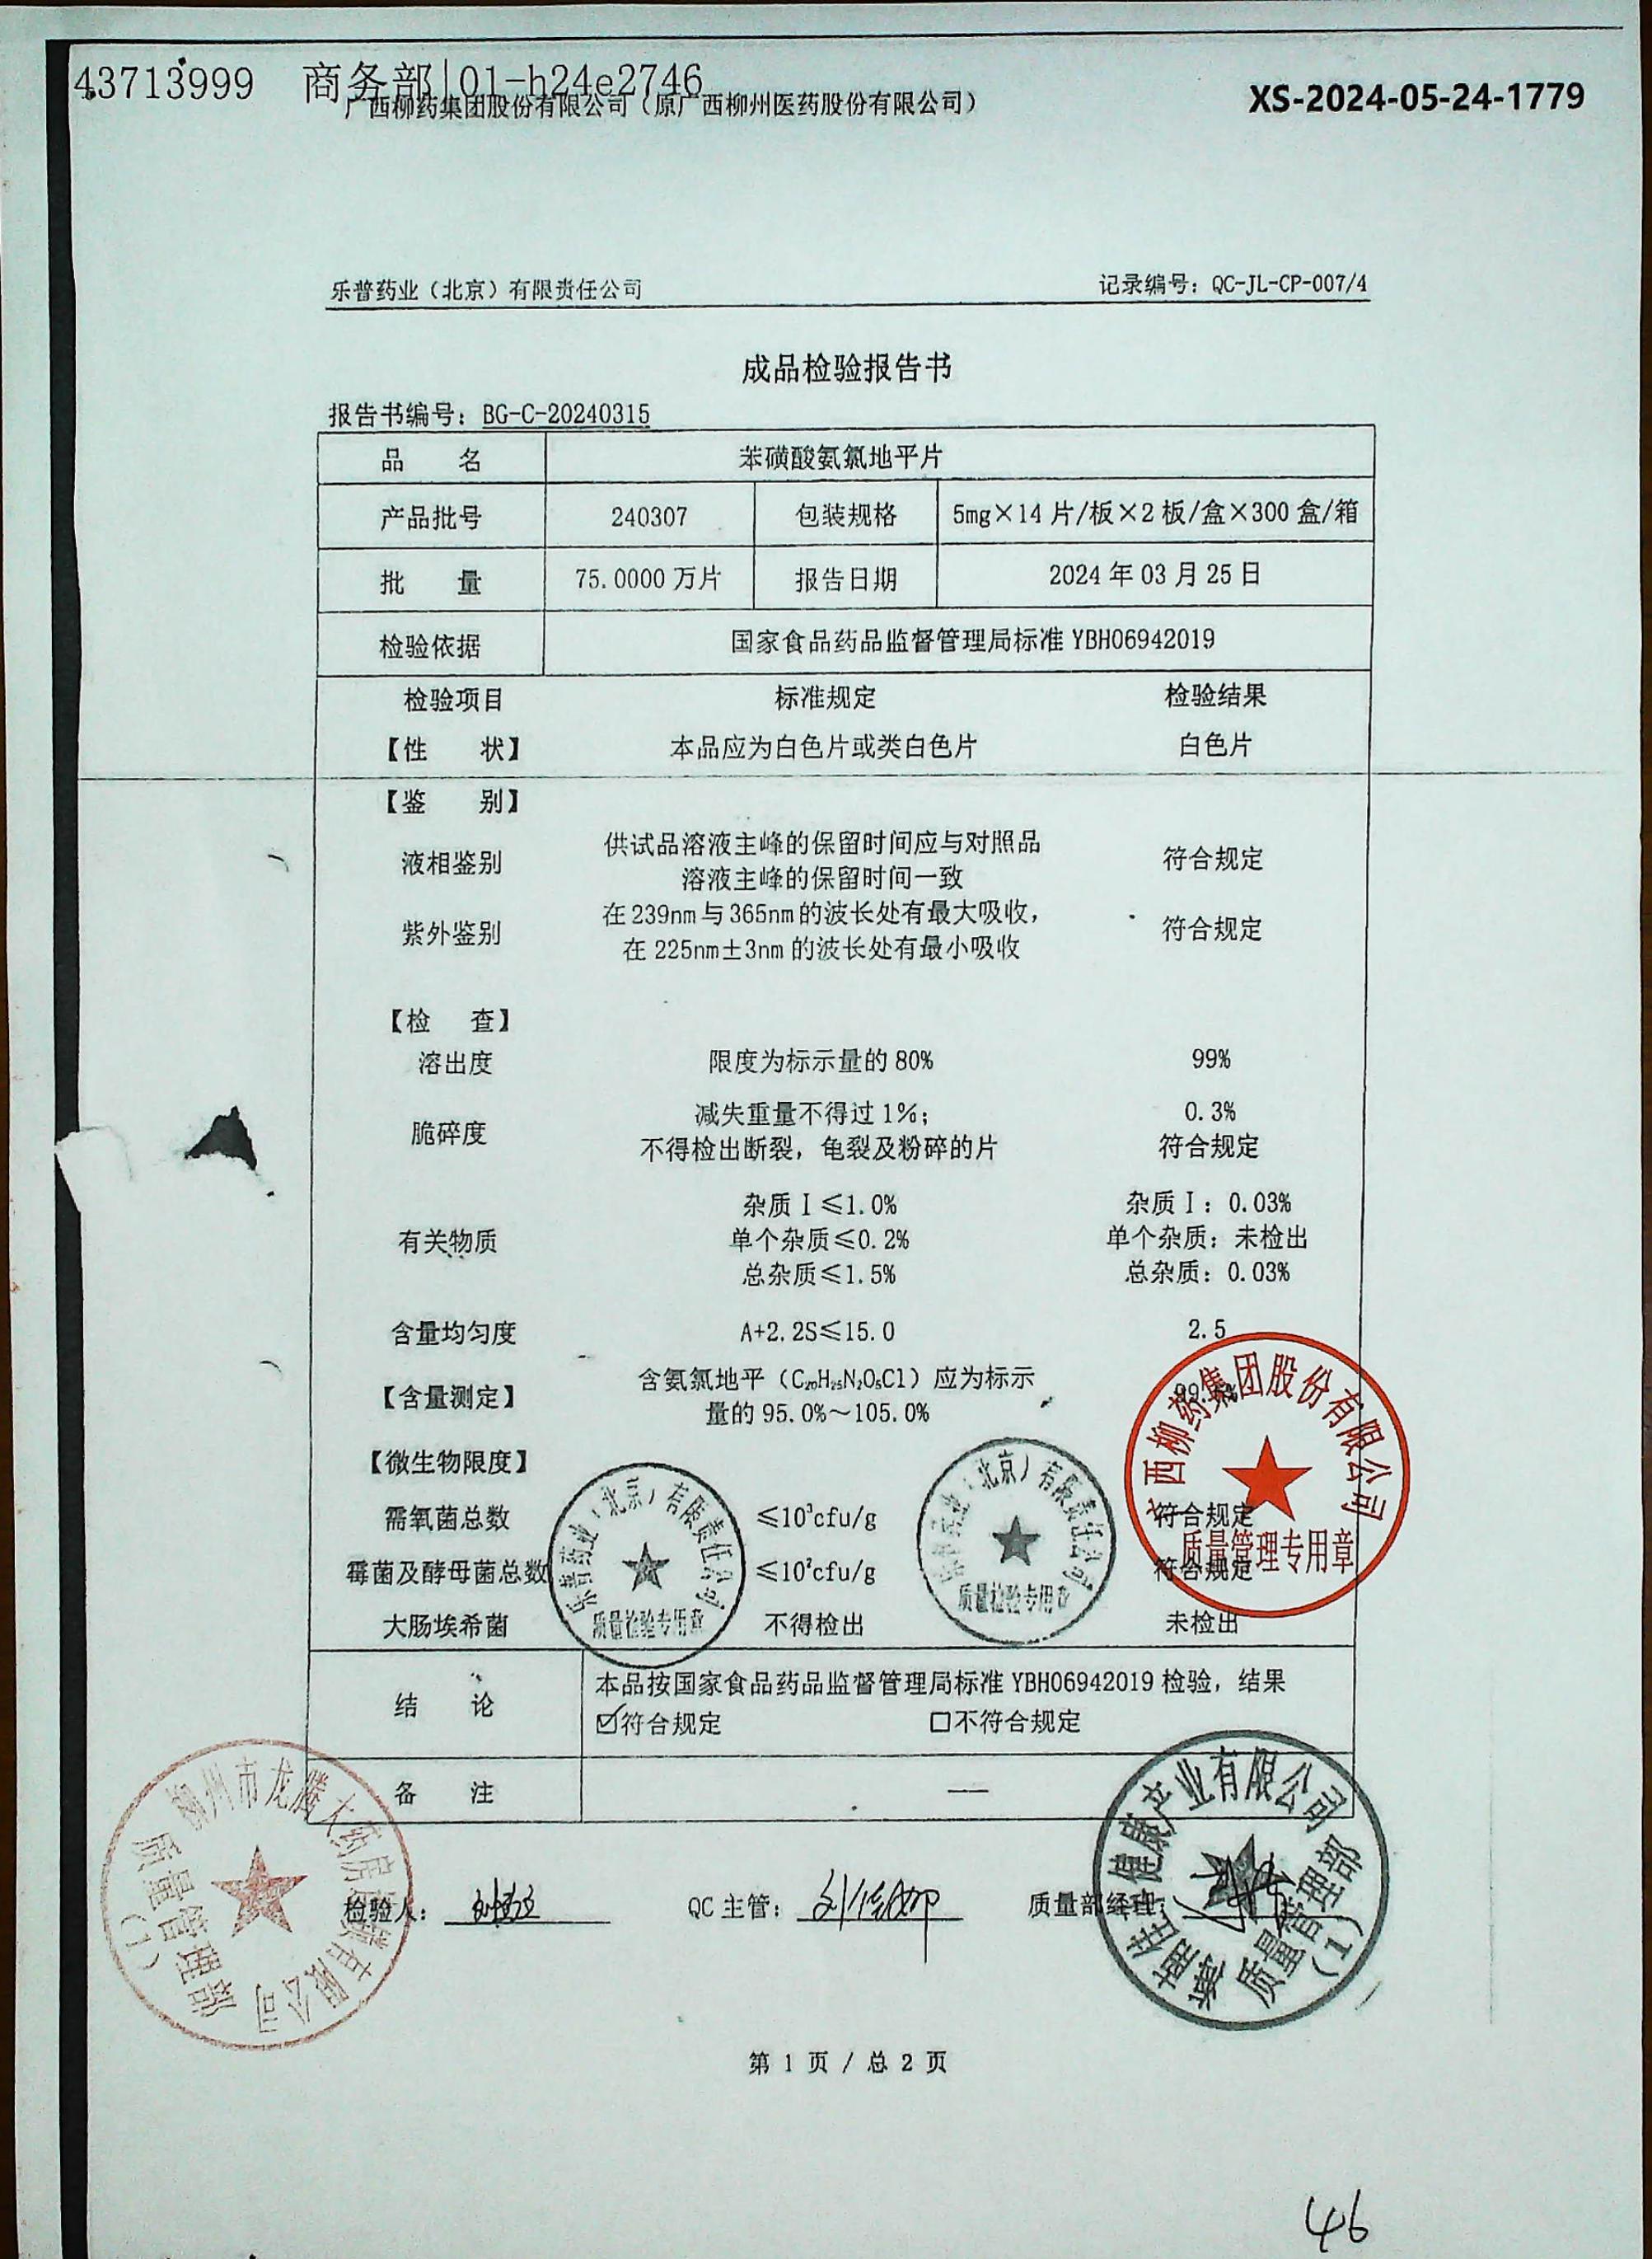 43713999 商务部|01-h24e2746
广西柳药集团股份有限公司（原广西柳州医药股份有限公司）
XS-2024-05-24-1779
乐普药业（北京）有限责任公司 记录编号：QC-JL-CP-007/4
成品检验报告书
报告书编号：BG-C-20240315
品 名 苯磺酸氨氯地平片
产品批号 240307 包装规格 5mg×14 片/板×2 板/盒×300 盒/箱
批 量 75.0000 万片 报告日期 2024 年 03 月 25 日
检验依据 国家食品药品监督管理局标准 YBH06942019
检验项目 标准规定 检验结果
【性 状】 本品应为白色片或类白色片 白色片
【鉴 别】
液相鉴别 供试品溶液主峰的保留时间应与对照品 符合规定
溶液主峰的保留时间一致
紫外鉴别 在 239nm 与 365nm 的波长处有最大吸收， 符合规定
在 225nm±3nm 的波长处有最小吸收
【检 查】
溶出度 限度为标示量的 80% 99%
脆碎度 减失重量不得过 1%； 0.3%
不得检出断裂，龟裂及粉碎的片 符合规定
有关物质 杂质Ⅰ≤1.0% 杂质Ⅰ：0.03%
单个杂质≤0.2% 单个杂质：未检出
总杂质≤1.5% 总杂质：0.03%
含量均匀度 A+2.2S≤15.0 2.5
【含量测定】 含氨氯地平（C₂₀H₂₅N₂O₅Cl）应为标示
量的 95.0%～105.0%
【微生物限度】
需氧菌总数 ≤10³cfu/g 符合规定
霉菌及酵母菌总数 ≤10²cfu/g 符合规定
大肠埃希菌 不得检出 未检出
西柳药集团股份有限公司
质量管理专用章
乐普药业（北京）有限责任公司
质量检验专用章
乐普药业（北京）有限责任公司
质量检验专用章
结 论 本品按国家食品药品监督管理局标准 YBH06942019 检验，结果
☑符合规定 □不符合规定
备 注 —
柳州市龙腾大药房有限公司
质量管理部
（1）
健康产业有限公司
质量管理部
（1）
检验人： QC 主管： 质量部经理：
第 1 页 / 总 2 页
46